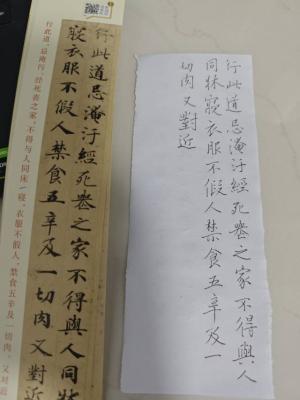 行此道忌淹汙經死喪之家不得與人同牀
寢衣服不假人禁食五辛及一切肉又對近
行此道，忌淹污，经死丧之家，不得与人同床寝，衣服不假人，禁食五辛及一切肉，又对近
行此道忌淹汙經死喪之家不得與人
同牀寢衣服不假人禁食五辛及一
切肉又對近